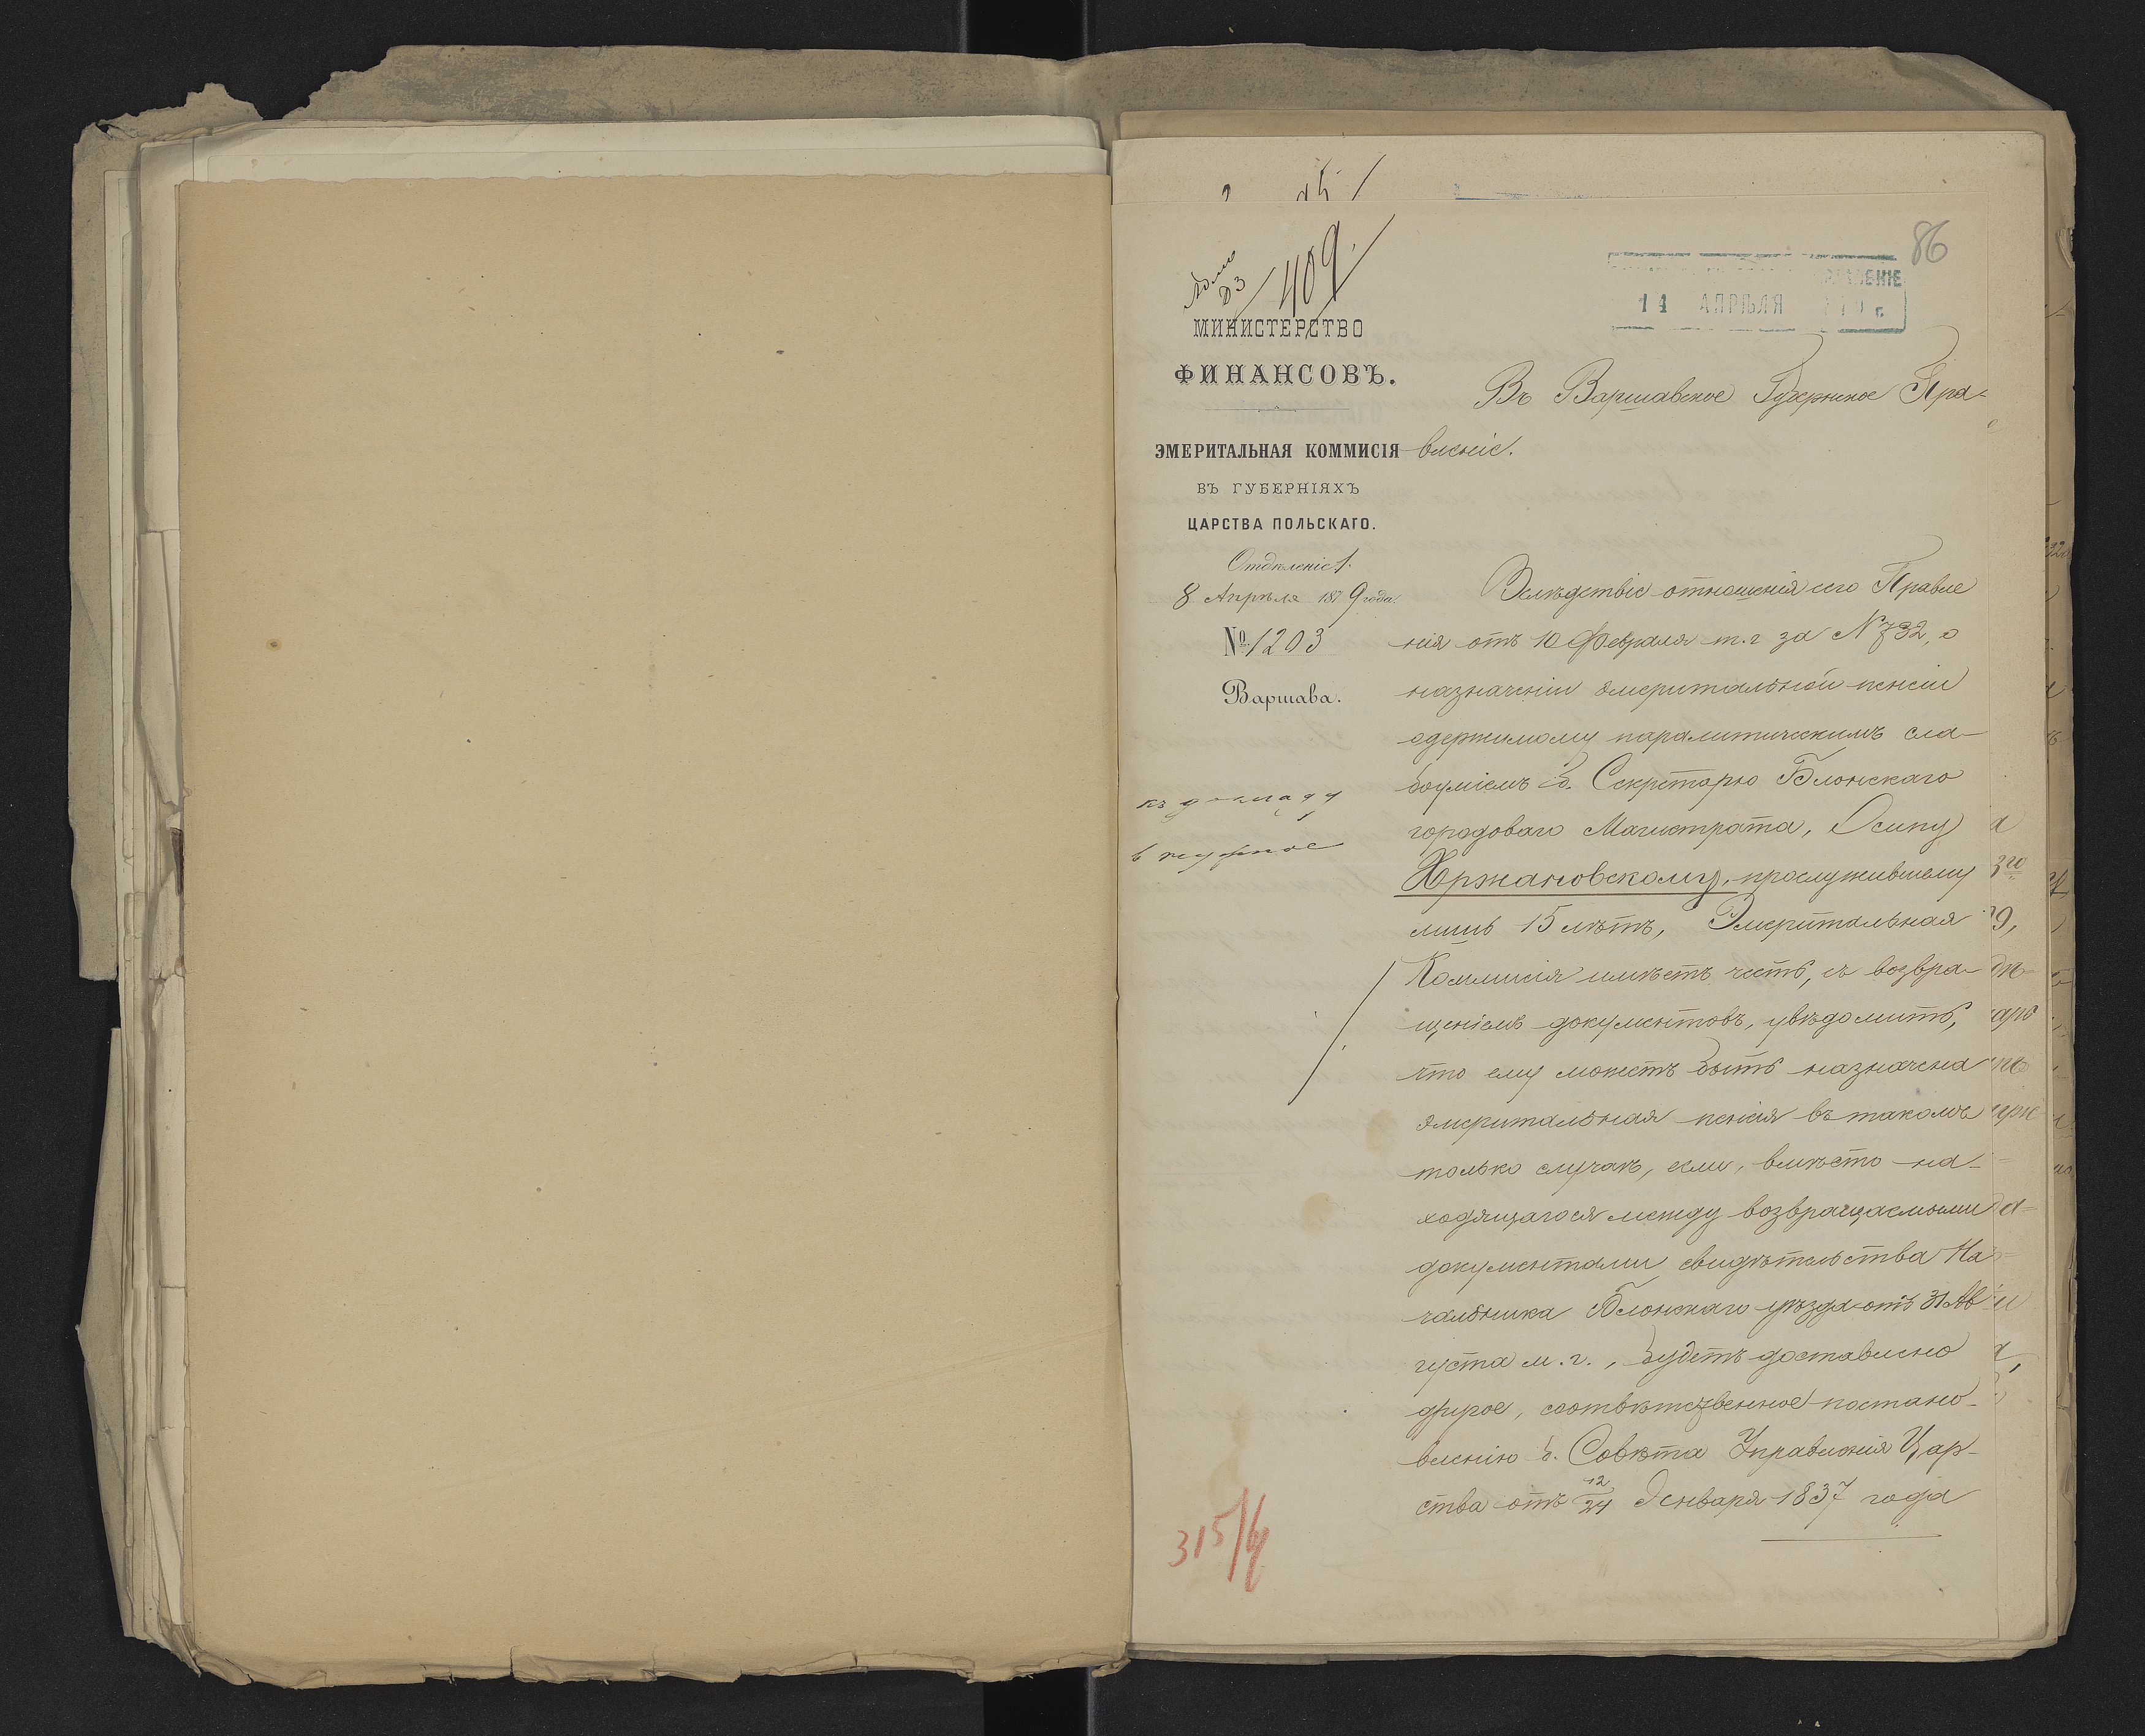 86
409.
14 АПРѢЛЯ
МИНИСТЕРСТВО
ФИНАНСОВЪ.
ЭМЕРИТАЛЬНАЯ КОММИСІЯ
ВЪ ГУБЕРНІЯХЪ
ЦАРСТВА ПОЛЬСКАГО.
Отдѣленіе 1.
8 Апрѣля 1879 года.
№ 1203
Варшава.
къ докладу
315/4
Въ Варшавское Губернское Пра-
вленіе.
Вслѣдствіе отношенія сего Правле
нія отъ 10 Февраля т. г за N 732, о
назначеніи эмеритальной пенсіи
одержимому паралитическимъ сла-
боуміемъ б. Секретарю Блонскаго
городоваго Магистрата, Осипу
Хржановскому, прослужившему
лишь 15 лѣтъ, Эмеритальная
Коммисія имѣетъ честь, съ возвра-
щеніемъ документовъ, увѣдомить,
что ему можетъ быть назначена
эмеритальная пенсія въ такомъ
только случаѣ, если, вмѣсто на-
ходящагося между возвращаемыми
документами свидѣтельства На
чальника Блонскаго уѣзда отъ 31 Ав
густа м. г., будетъ доставлено
другое, соотвѣтственное постано-
вленію б. Совѣта Управленія Цар-
ства отъ 12/24 Января 1837 года